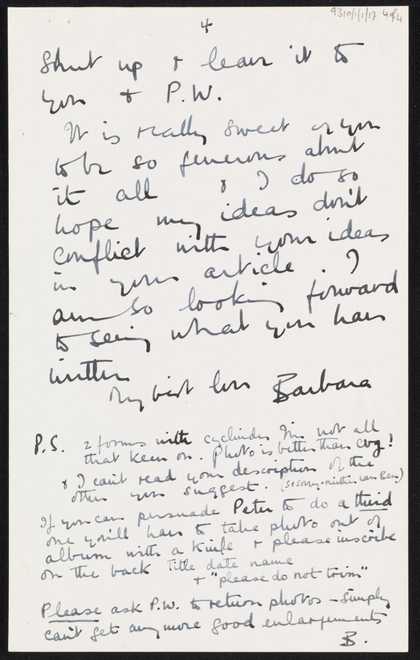 9310/1/1/17 4of4
4
Shut up & leave it to
you & P.W.
It is really sweet of you
to be so generous about
it all & I do so
hope my ideas don't
conflict with your ideas
in your article. I
am so looking forward
to seeing what you have
written
My best love Barbara
P.S. 2 forms with cylinder I'm not all
that keen on. Photo is better than cvg!
& I can't read your description of the
other you suggest.
If you can persuade Peter to do a third
one you'll have to take photo out of
album with a knife & please inscribe
on the back Title date name
& "please do not trim"
Please ask P.W. to return photos - simply
can't get any more good enlargements
B.